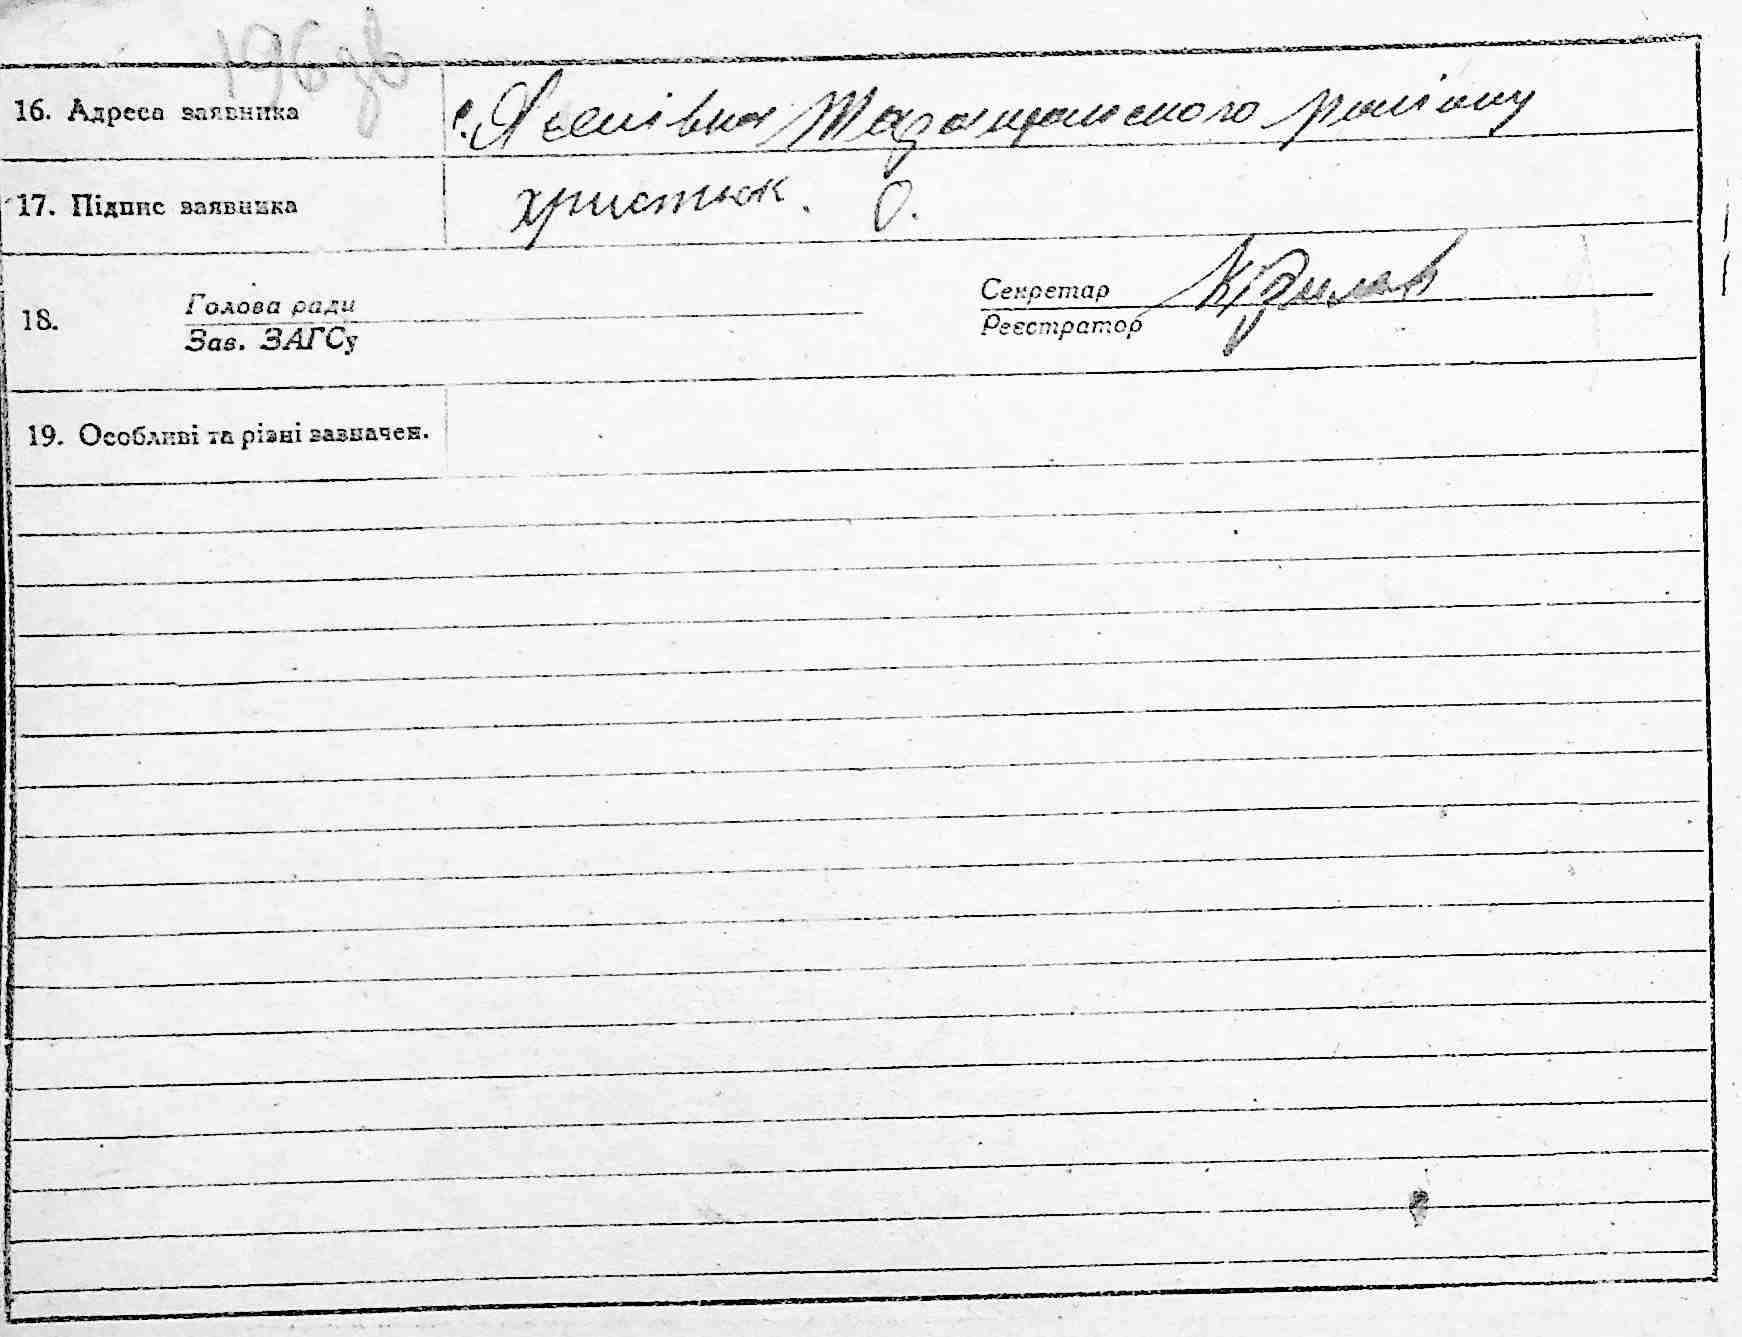 196 зв
16. Адреса заявника с. Лєсівка Таращанського району
17. Підпис заявника христюк. О.
18. Голова ради Секретар
Зав. ЗАГСу Реєстратор
19. Особливі та різні зазначен.